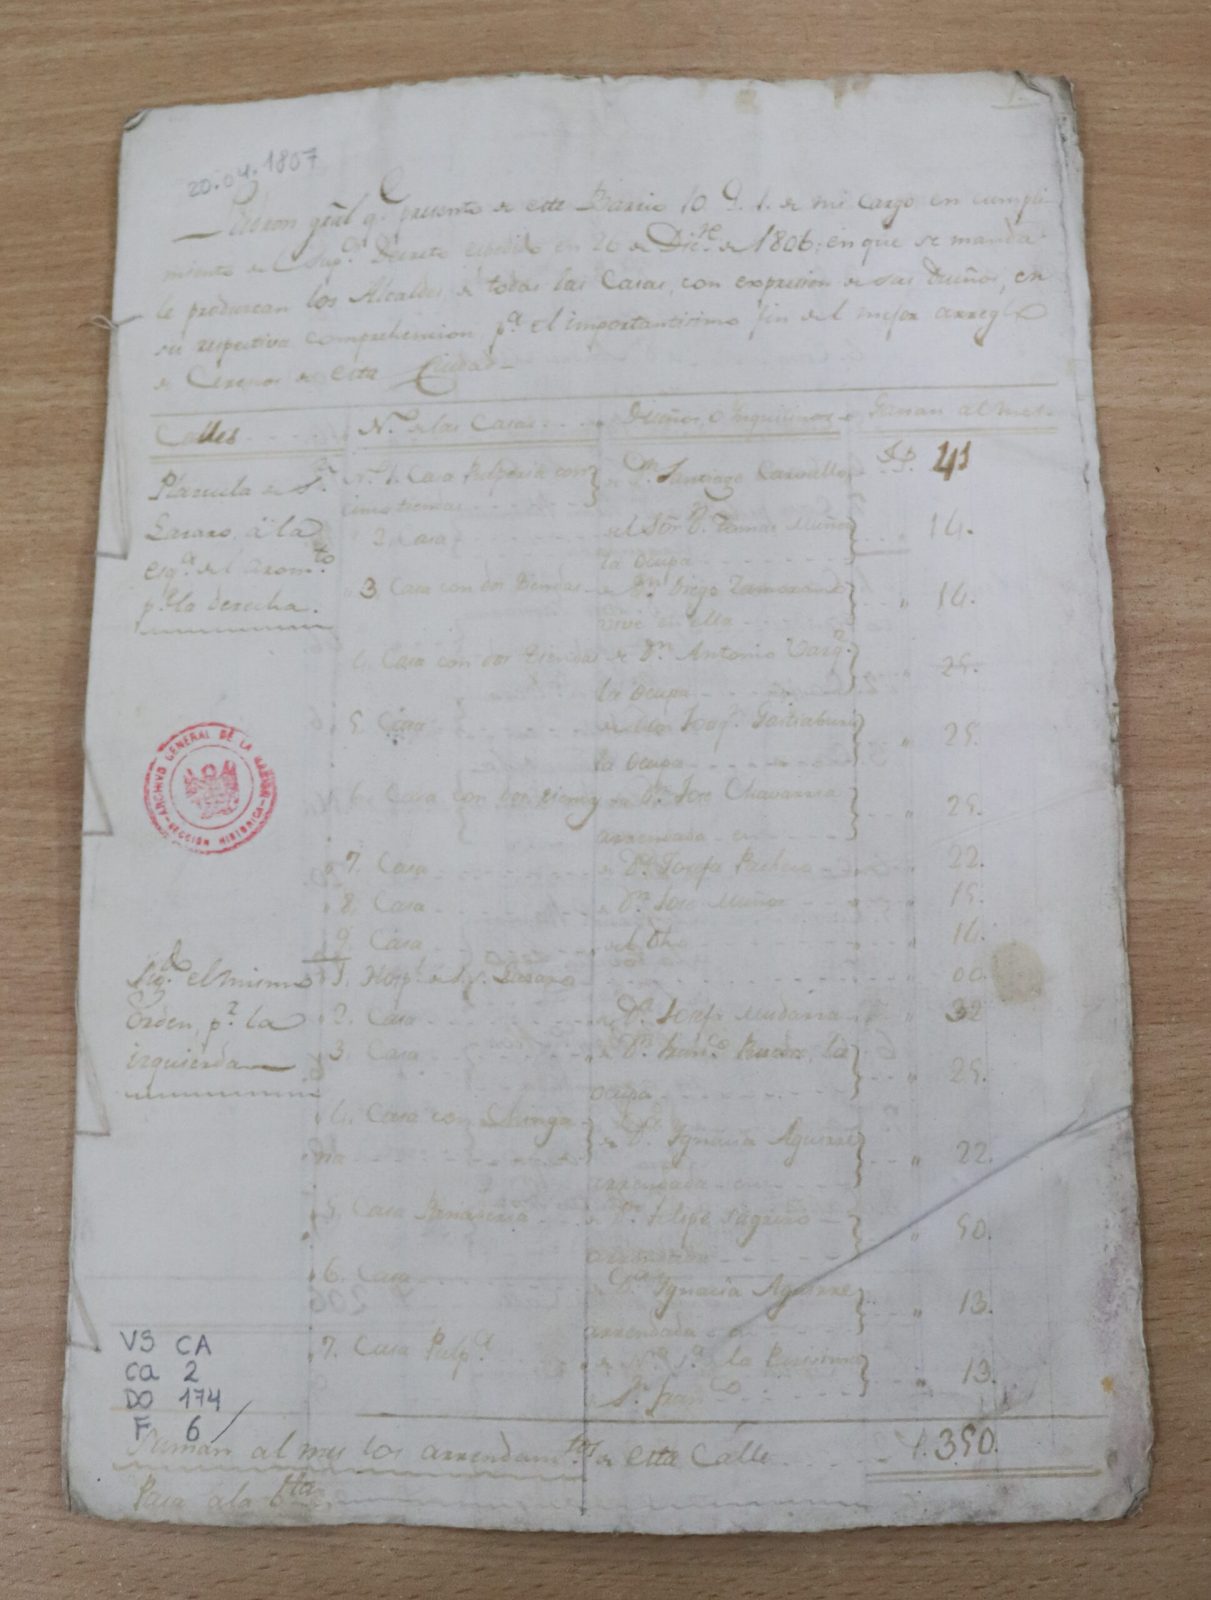 1.
20.04.1807
Padron grãl q.e presento de este Barrio 10. Q. 1. de mi cargo en cumpli-
miento del Sup.or Decreto expedido en 26 de Dic.re de 1806; en que se manda
le produzcan los Alcaldes, de todas las Casas, con expresion de sus Dueños, en
su respectiva comprehencion p.a el importantisimo fin del mejor arreglo
de Censos de esta Ciudad_
Calles N.o de las Casas Dueños, o Inquilinos Ganan al mes
Plazuela de S.n N.o 1. Casa Pulperia con de D.n Santiago Carvallo 41
Lazaro, à la 2. Casa del Sõr D. Tomas Muños 14.
esq.a del la ocupa
p.r la derecha. 3. Casa con dos tiendas de D.n Diego Zamorano 14.
vive en ella
4. Casa con dos tiendas de D.n Antonio Varg.s 25.
la ocupa
5. Casa la ocupa 25.
6. Casa con dos de D.n Jose Chavarria 25.
arrendada en
7. Casa de D.a Josefa Pacheco 22.
8. Casa de D.n Jose Muños 15.
9. Casa del dho 14.
Sig.e el mismo 1. Hosp.l de S. Lazaro 00.
orden, p.r la 2. Casa de D.a Josefa Mudarra 32
izquierda 3. Casa de D.n Fran.co Rueda, la 25.
ocupa
4. Casa con Chinga de D.a Ignacia Aguirre 22.
na arrendada en
5. Casa Panaderia de D.n Felipe 50.
arrendada
6. Casa de D.a Ignacia Aguirre 13.
arrendada en
7. Casa Pulp.a de N.a S.a la Purisima 13.
de S.n Fran.co
ARCHIVO GENERAL DE LA NACION
SECCIÓN HISTÓRICA
VS CA
CA 2
DO 174
F 6
Suman al mes los arrendam.tos de esta Calle 350.
Pasa a la b.lta